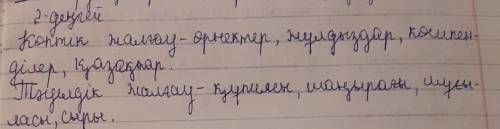 2-деңгей
Көптік жалғау - өрнектер, жұлдыздар, көшпен-
ділер, қазақтар.
Тәуелдік жалғау - құпиясы, шаңырағы, шуғы-
ласы, сыры.